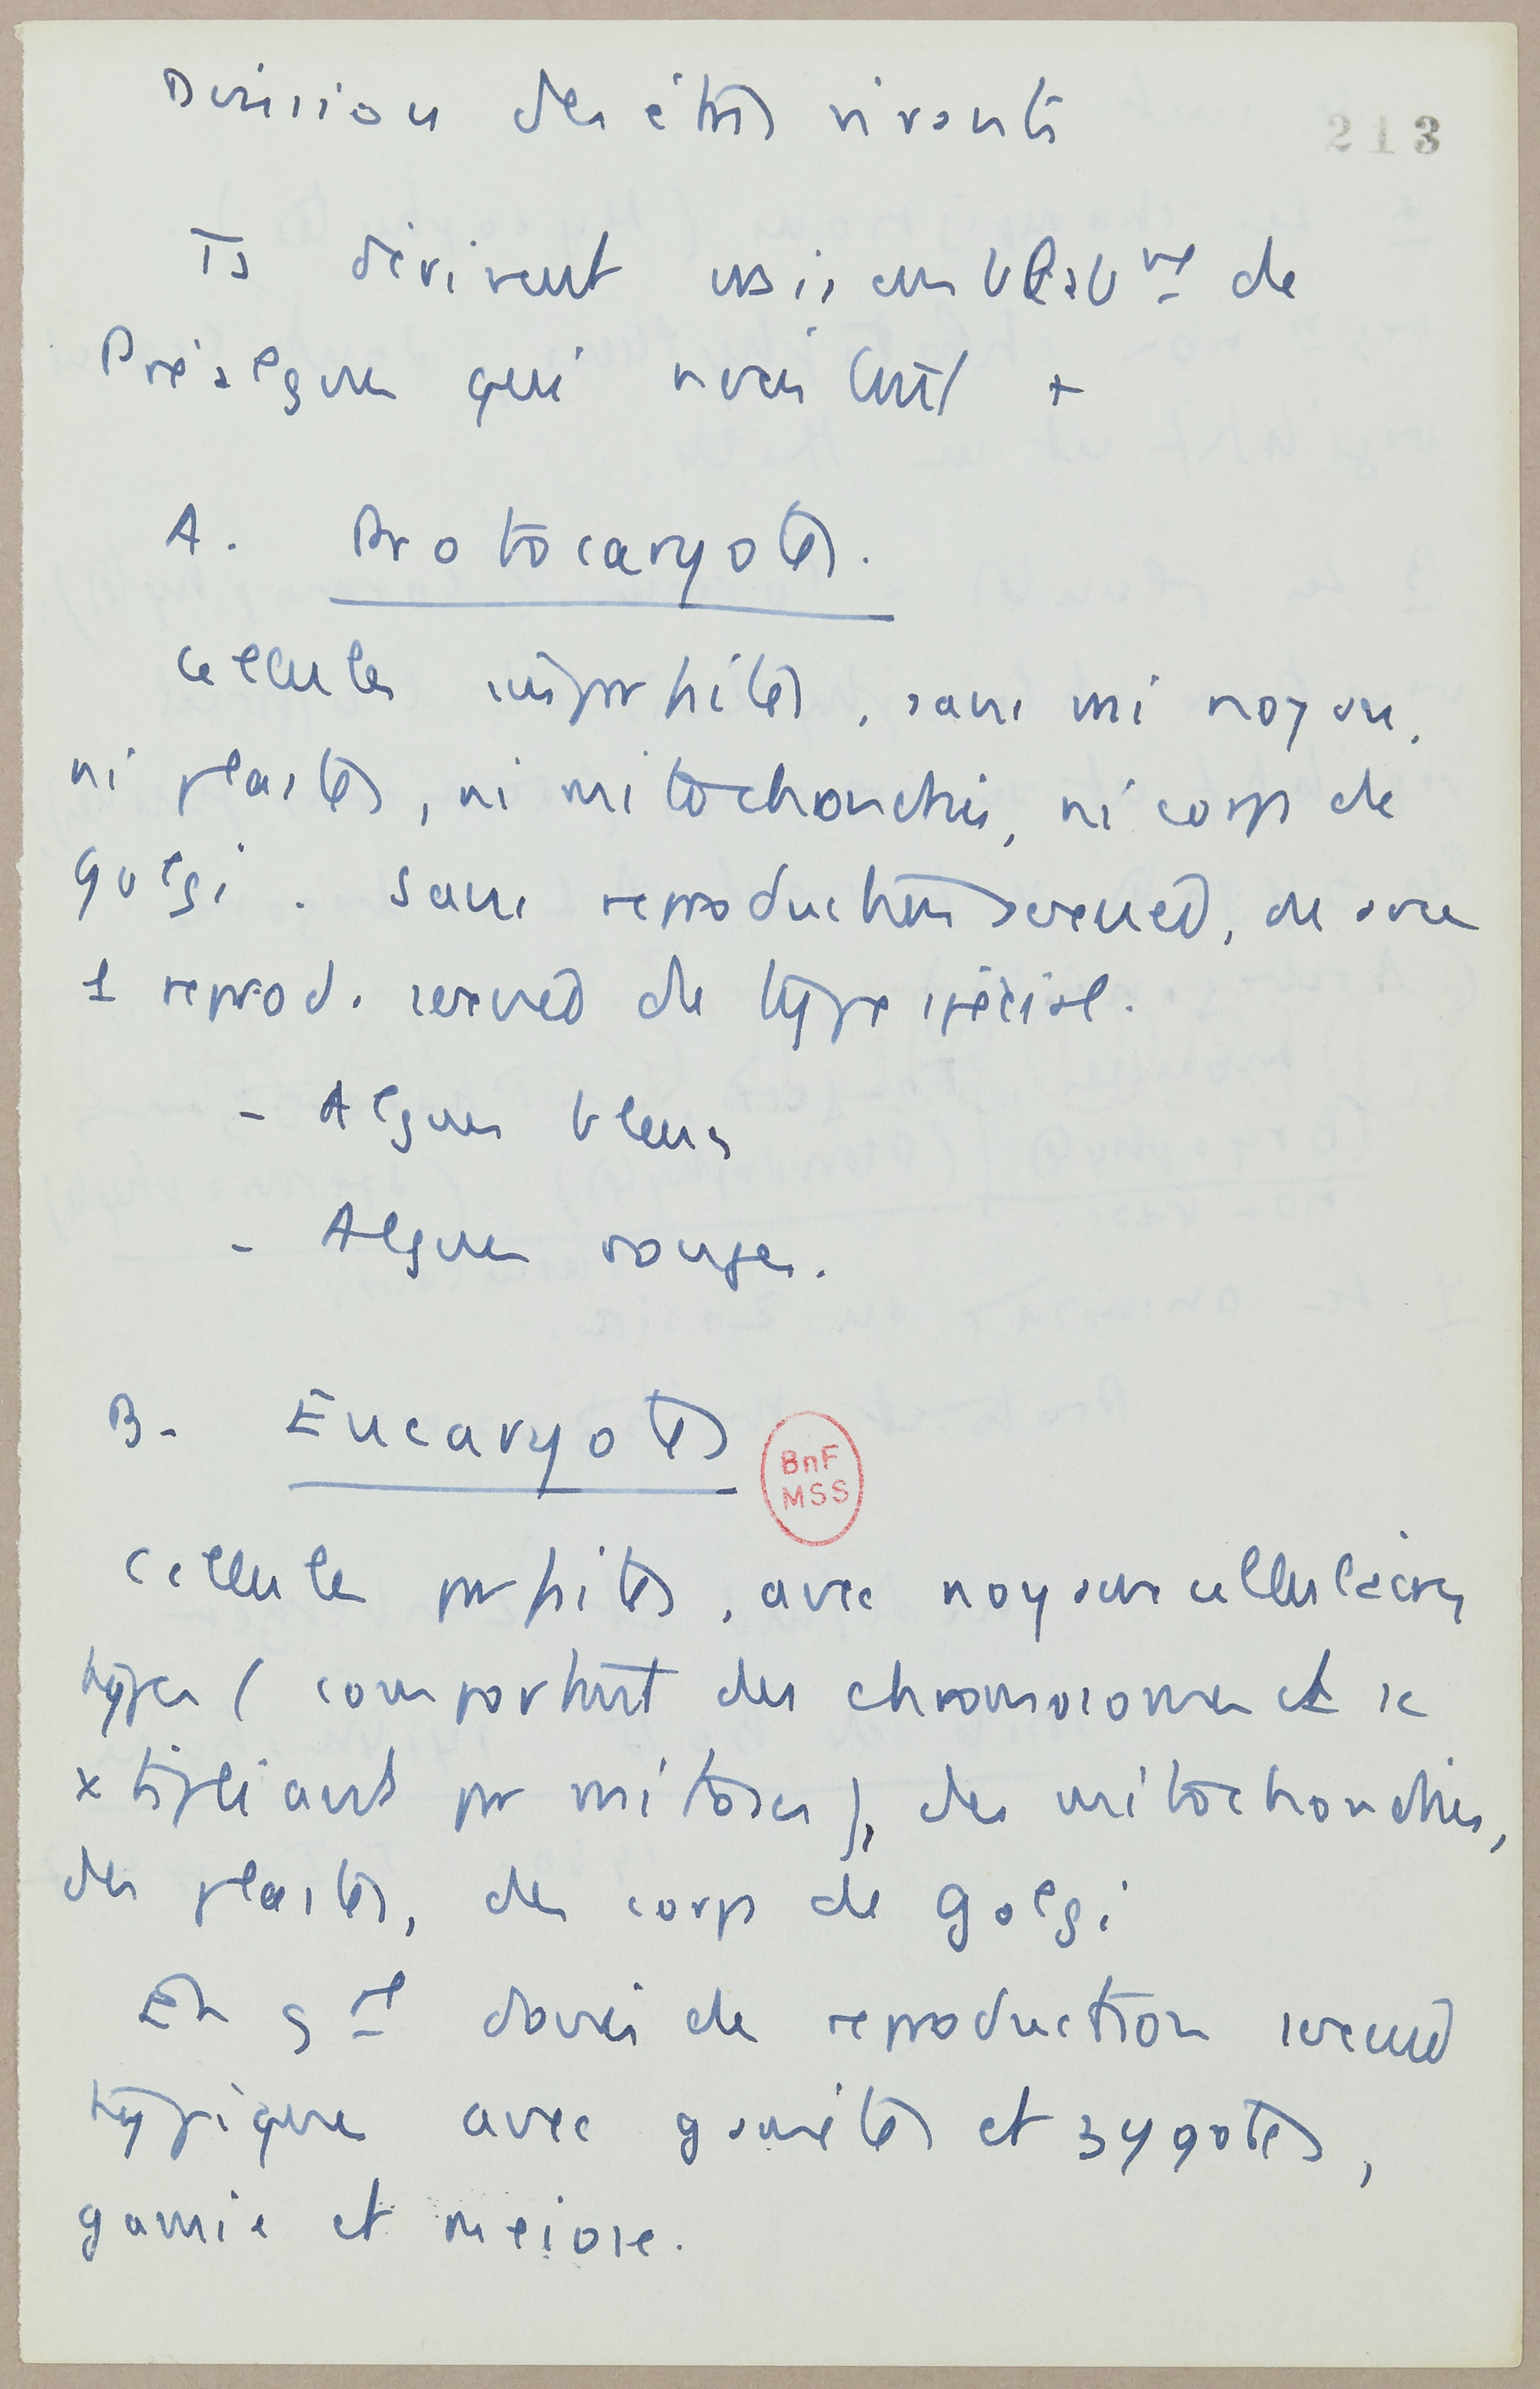 Division des êtres vivants
213
Ts dérivent vraisemblablt de
Préalgues qui n'existent +
A. Protocaryotes.
Cellules imparfaites, sans ni noyau,
ni plastes, ni mitochondries, ni corps de
Golgi. Sans reproduction sexuée, ou avec
1 reprod. sexuée de type spécial.
- Algues bleues
- Algues rouges.
B. Eucaryotes
BnF
MSS
Cellules parfaites, avec noyaux cellulaires
types (comportant des chromosomes et se
x tipliant par mitoses), des mitochondries,
des plastes, des corps de Golgi
En gal doués de reproduction sexuée
typique avec gamètes et zygotes,
gamie et meiose.